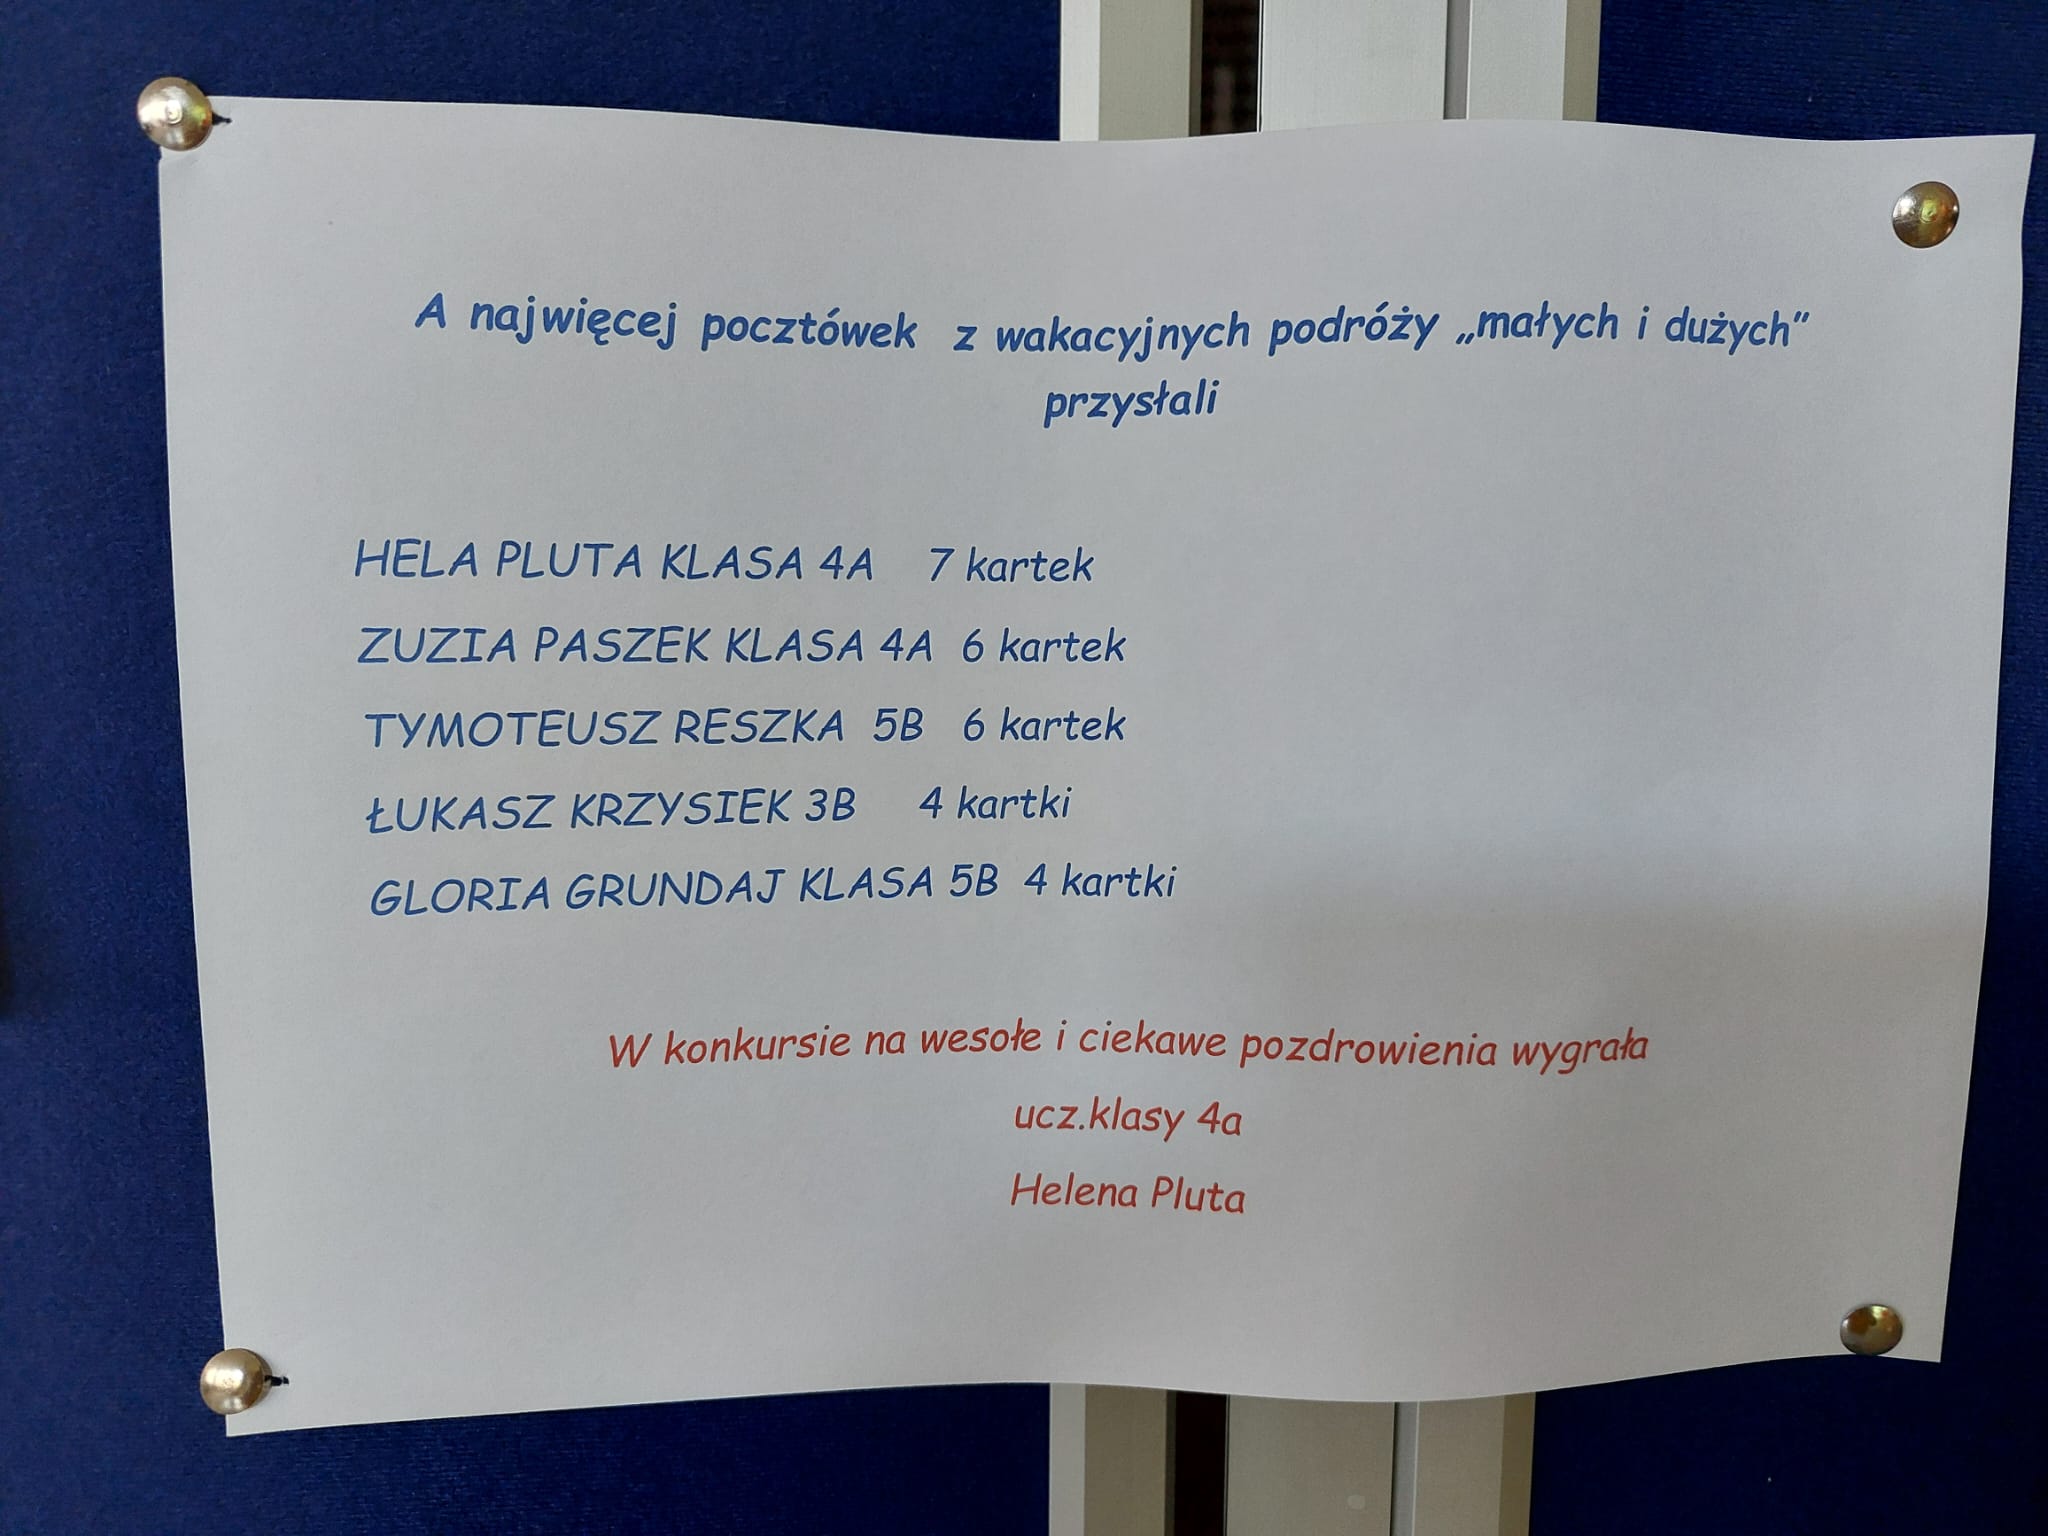 A najwięcej pocztówek z wakacyjnych podróży „małych i dużych”
przysłali
HELA PLUTA KLASA 4A 7 kartek
ZUZIA PASZEK KLASA 4A 6 kartek
TYMOTEUSZ RESZKA 5B 6 kartek
ŁUKASZ KRZYSIEK 3B 4 kartki
GLORIA GRUNDAJ KLASA 5B 4 kartki
W konkursie na wesołe i ciekawe pozdrowienia wygrała
ucz.klasy 4a
Helena Pluta